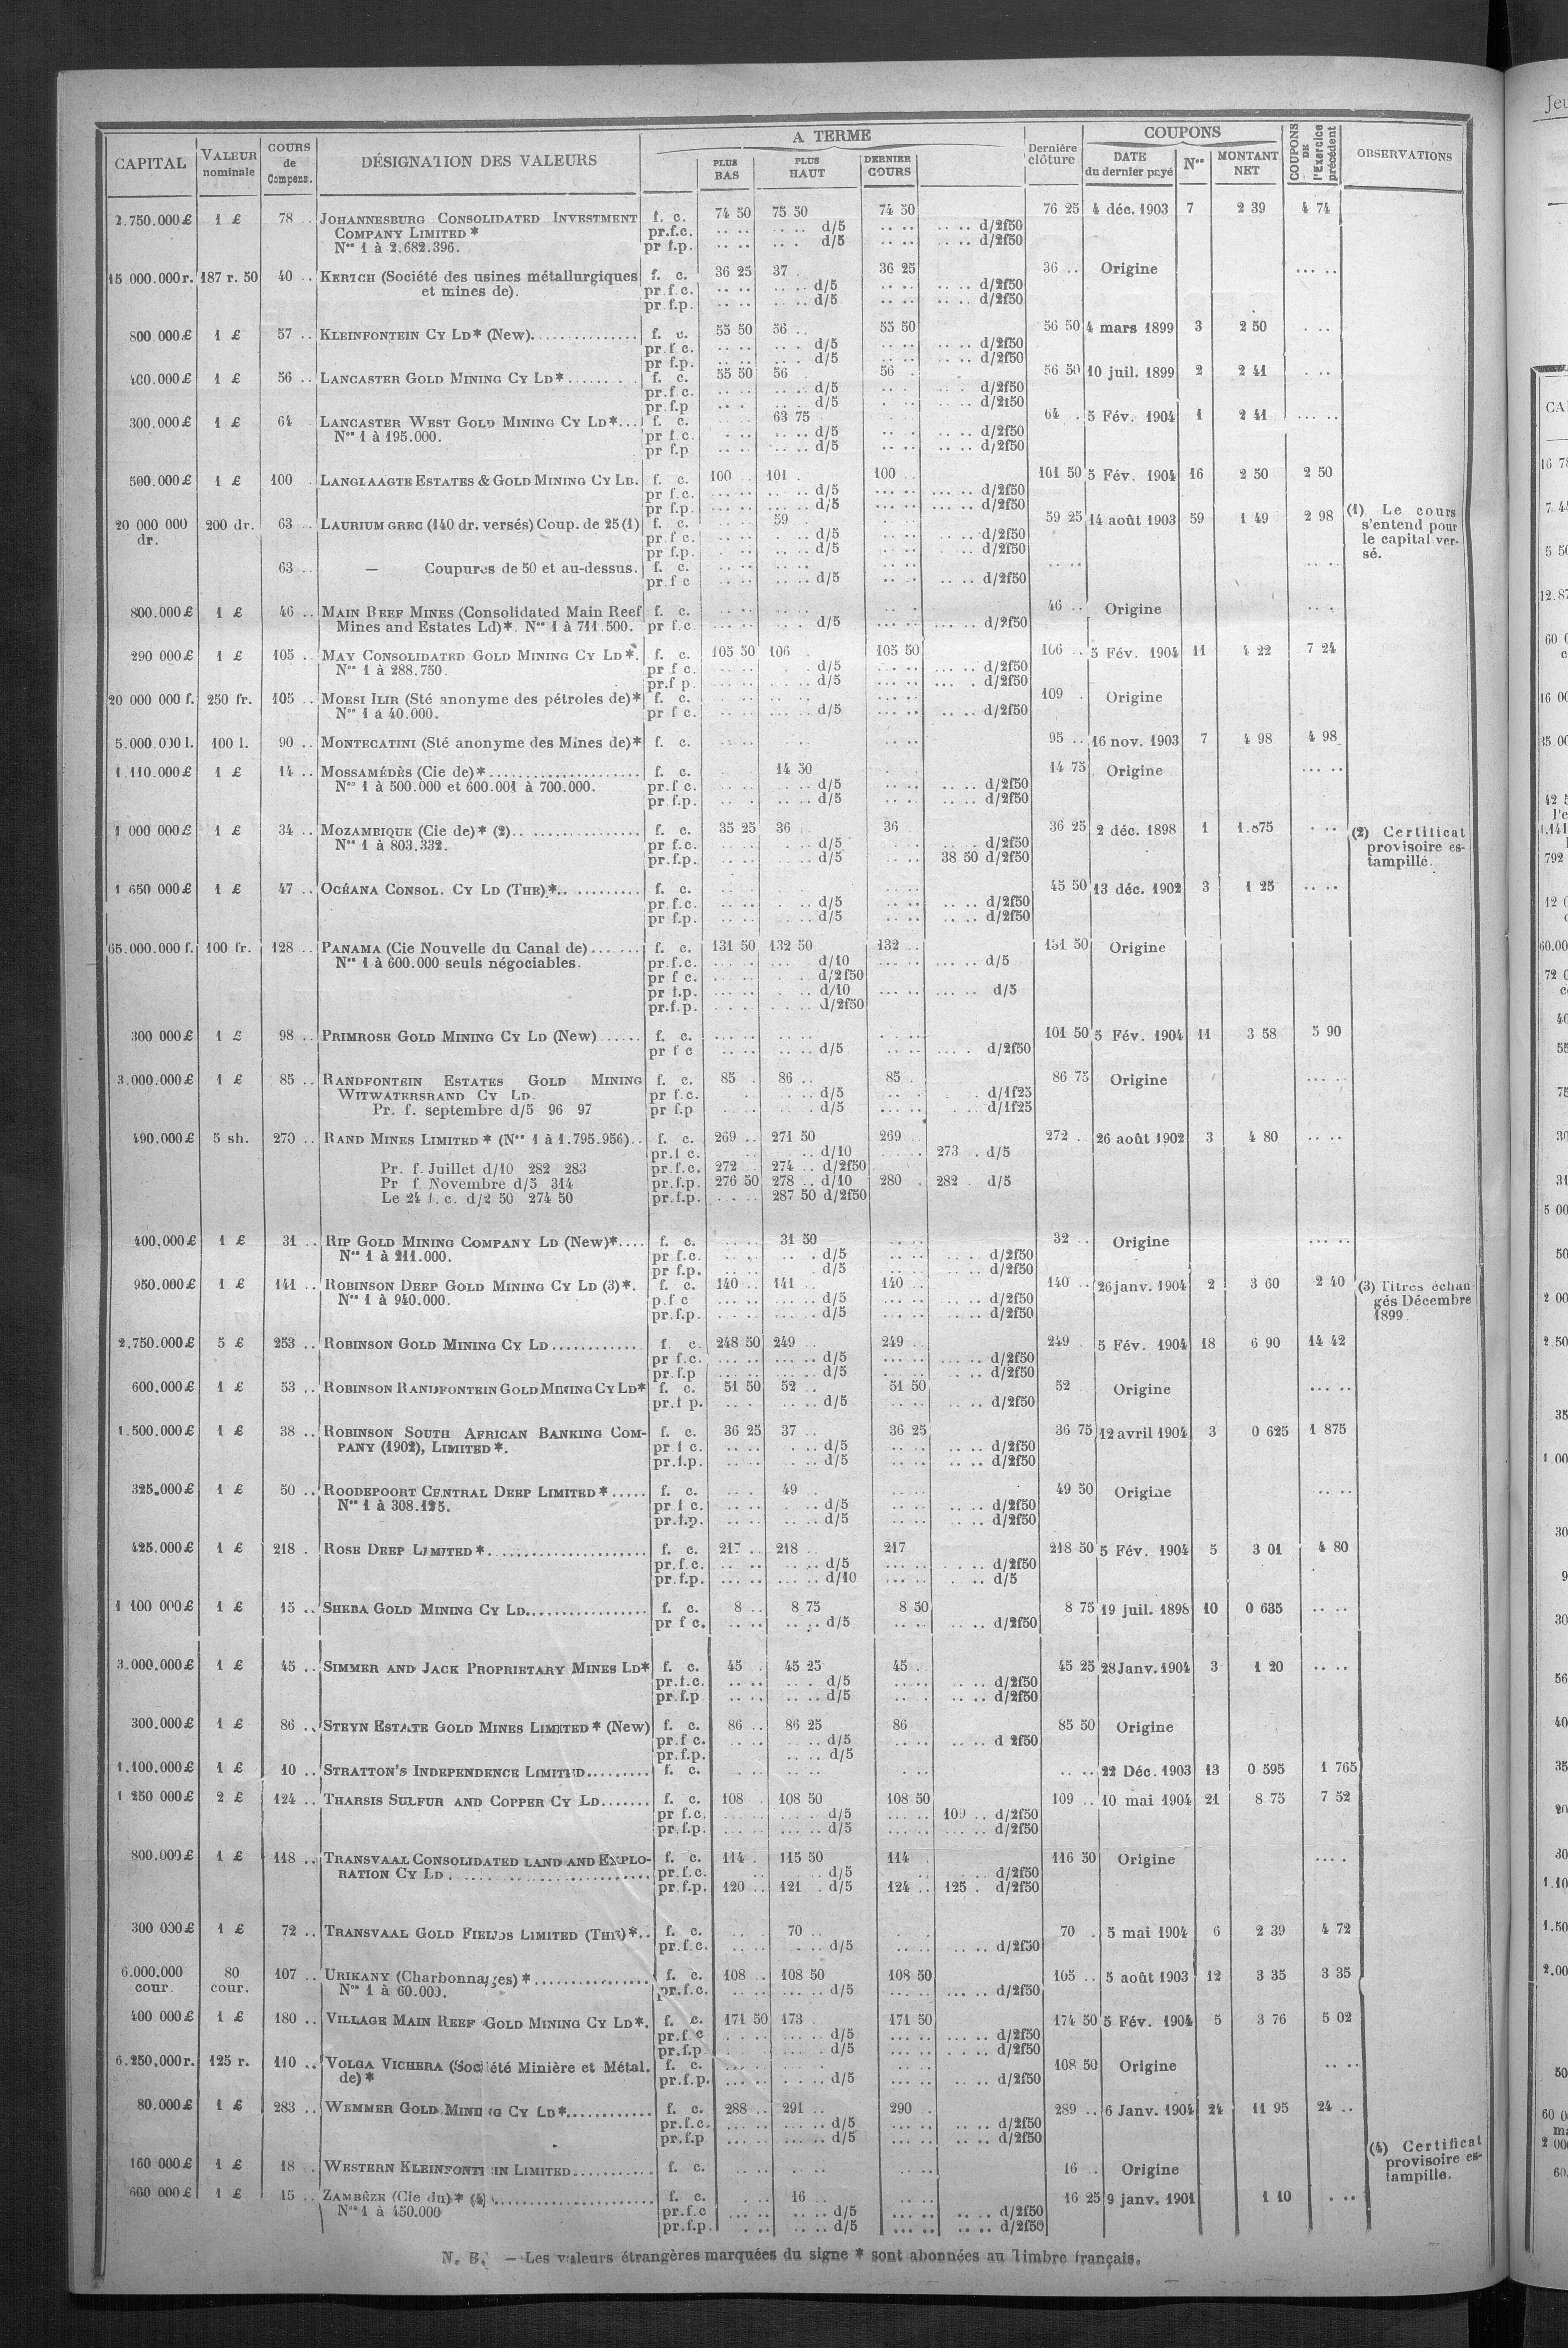 CAPITAL VALEUR nominale COURS de Compens. DÉSIGNATION DES VALEURS A TERME PLUS BAS PLUS HAUT DERNIER COURS Dernière clôture COUPONS DATE du dernier payé Nos MONTANT NET COUPONS DE l'Exercice précédent OBSERVATIONS
2.750.000£ 1 £ 78 .. JOHANNESBURG CONSOLIDATED INVESTMENT f. c. 74 50 75 50 74 50 76 25 4 déc. 1903 7 2 39 4 74
COMPANY LIMITED * pr.f.c. d/5 d/2f50
Nos 1 à 2.682.396. pr f.p. d/5 d/2f50
15 000.000r. 187 r. 50 40 .. KERTCH (Société des usines métallurgiques f. c. 36 25 37 . 36 25 36 .. Origine
et mines de). pr.f c. d/5 d/2f50
pr.f.p. d/5 d/2f50
800 000£ 1 £ 57 .. KLEINFONTEIN CY LD* (New) f. c. 55 50 56 .. 55 50 56 50 4 mars 1899 3 2 50
pr.f c. d/5 d/2f50
pr f.p. d/5 d/2f50
400.000£ 1 £ 56 .. LANCASTER GOLD MINING CY LD* f. c. 55 50 56 56 . 56 50 10 juil. 1899 2 2 41
pr.f c. d/5 d/2f50
pr.f.p d/5 d/2f50
300.000£ 1 £ 64 LANCASTER WEST GOLD MINING CY LD* f. c. 63 75 64 . 5 Fév. 1904 1 2 41
Nos 1 à 195.000. pr f c. d/5 d/2f50
pr f.p d/5 d/2f50
500.000£ 1 £ 100 . LANGLAAGTE ESTATES & GOLD MINING CY LD. f. c. 100 101 . 100 .. 101 50 5 Fév. 1904 16 2 50 2 50
pr f.c. d/5 d/2f50
pr f.p. d/5 d/2f50
20 000 000 dr. 200 dr. 63 .. LAURIUM GREC (140 dr. versés) Coup. de 25 (1) f. c. 59 59 25 14 août 1903 59 1 49 2 98
(1) Le cours s'entend pour le capital versé.
pr.f c. d/5 d/2f50
pr f.p. d/5 d/2f50
63 .. — Coupures de 50 et au-dessus. f. c.
pr.f c d/5 d/2f50
800.000£ 1 £ 46 .. MAIN REEF MINES (Consolidated Main Reef f. c. 46 .. Origine
Mines and Estates Ld)*. Nos 1 à 711.500. pr f.c. d/5 d/2f50
290 000£ 1 £ 105 .. MAY CONSOLIDATED GOLD MINING CY LD*. f. c. 105 50 106 105 50 106 .. 5 Fév. 1904 11 4 22 7 24
Nos 1 à 288.750. pr f c. d/5 d/2f50
pr.f p. d/5 d/2f50
20 000 000 f. 250 fr. 105 .. MORSI ILIR (Sté anonyme des pétroles de)* f. c. 109 . Origine
Nos 1 à 40.000. pr f c. d/5 d/2f50
5.000.000 l. 100 l. 90 .. MONTECATINI (Sté anonyme des Mines de)* f. c. 95 .. 16 nov. 1903 7 4 98 4 98
1.110.000£ 1 £ 14 .. MOSSAMÉDÈS (Cie de)* f. c. 14 50 14 75 Origine
Nos 1 à 500.000 et 600.001 à 700.000. pr.f c. d/5 d/2f50
pr f.p. d/5 d/2f50
1 000 000£ 1 £ 34 .. MOZAMBIQUE (Cie de)* (2) f. c. 35 25 36 36 . 36 25 2 déc. 1898 1 1.875
(2) Certificat provisoire estampillé.
Nos 1 à 803.332. pr f.c. d/5 d/2f50
pr.f.p. d/5 38 50 d/2f50
1 650 000£ 1 £ 47 .. OCÉANA CONSOL. CY LD (THE)* f. c. 45 50 13 déc. 1902 3 1 25
pr.f.c. d/5 d/2f50
pr f.p. d/5 d/2f50
65.000.000 f. 100 fr. 128 .. PANAMA (Cie Nouvelle du Canal de) f. c. 131 50 132 50 132 .. 131 50 Origine
Nos 1 à 600.000 seuls négociables. pr.f.c. d/10 d/5
pr f c. d/2f50
pr f.p. d/10 d/5
pr.f.p. d/2f50
300 000£ 1 £ 98 .. PRIMROSE GOLD MINING CY LD (New) f. c. 101 50 5 Fév. 1904 11 3 58 5 90
pr f c d/5 d/2f50
3.000.000£ 1 £ 85 .. RANDFONTEIN ESTATES GOLD MINING f. c. 85 . 86 .. 85 . 86 75 Origine
WITWATERSRAND CY LD. pr f.c. d/5 d/1f25
Pr. f. septembre d/5 96 97 pr f.p d/5 d/1f25
490.000£ 5 sh. 270 .. RAND MINES LIMITED * (Nos 1 à 1.795.956) f. c. 269 .. 271 50 269 .. 272 . 26 août 1902 3 4 80
pr.f c. d/10 273 . d/5
Pr. f. Juillet d/10 282 283 pr.f.c. 272 274 .. d/2f50
Pr f. Novembre d/5 314 pr.f.p. 276 50 278 .. d/10 280 . 282 . d/5
Le 24 f. c. d/2 50 274 50 pr.f.p. 287 50 d/2f50
400.000£ 1 £ 31 .. RIP GOLD MINING COMPANY LD (New)* f. c. 31 50 32 .. Origine
Nos 1 à 211.000. pr f.c. d/5 d/2f50
pr f.p. d/5 d/2f50
950.000£ 1 £ 141 .. ROBINSON DEEP GOLD MINING CY LD (3)*. f. c. 140 .. 141 .. 140 .. 140 .. 26 janv. 1904 2 3 60 2 40
(3) Titres échangés Décembre 1899.
Nos 1 à 940.000. p.f c d/5 d/2f50
pr.f.p. d/5 d/2f50
2.750.000£ 5 £ 253 .. ROBINSON GOLD MINING CY LD f. c. 248 50 249 .. 249 .. 249 . 5 Fév. 1904 18 6 90 14 42
pr f.c. d/5 d/2f50
pr.f.p d/5 d/2f50
600.000£ 1 £ 53 .. ROBINSON RANDFONTEIN GOLD MINING CY LD* f. c. 51 50 52 .. 51 50 52 Origine
pr.f p. d/5 d/2f50
1.500.000£ 1 £ 38 .. ROBINSON SOUTH AFRICAN BANKING COM- f. c. 36 25 37 .. 36 25 36 75 12 avril 1904 3 0 625 1 875
PANY (1902), LIMITED *. pr f c. d/5 d/2f50
pr.f.p. d/5 d/2f50
325.000£ 1 £ 50 .. ROODEPOORT CENTRAL DEEP LIMITED * f. c. 49 .. 49 50 Origine
Nos 1 à 308.125. pr f c. d/5 d/2f50
pr.f.p. d/5 d/2f50
425.000£ 1 £ 218 . ROSE DEEP LIMITED * f. c. 217 .. 218 .. 217 218 50 5 Fév. 1904 5 3 01 4 80
pr.f.c. d/5 d/2f50
pr.f.p. d/10 d/5
1 100 000£ 1 £ 15 .. SHEBA GOLD MINING CY LD f. c. 8 .. 8 75 8 50 8 75 19 juil. 1898 10 0 635
pr f c. d/5 d/2f50
3.000.000£ 1 £ 45 .. SIMMER AND JACK PROPRIETARY MINES LD* f. c. 45 . 45 25 45 .. 45 25 28 Janv. 1904 3 1 20
pr.f.c. d/5 d/2f50
pr.f.p d/5 d/2f50
300.000£ 1 £ 86 .. STEYN ESTATE GOLD MINES LIMITED * (New) f. c. 86 .. 86 25 86 85 50 Origine
pr.f c. d/5 d 2f50
pr.f.p. d/5
1.100.000£ 1 £ 10 .. STRATTON'S INDEPENDENCE LIMITED f. c. 22 Déc. 1903 13 0 595 1 765
1 250 000£ 2 £ 124 .. THARSIS SULFUR AND COPPER CY LD f. c. 108 . 108 50 108 50 109 .. 10 mai 1904 21 8 75 7 52
pr f.c. d/5 109 .. d/2f50
pr.f.p. d/5 d/2f50
800.000£ 1 £ 118 .. TRANSVAAL CONSOLIDATED LAND AND EXPLO- f. c. 114 . 115 50 114 116 50 Origine
RATION CY LD pr.f.c. d/5 d/2f50
pr.f.p. 120 .. 121 . d/5 124 .. 125 . d/2f50
300 000£ 1 £ 72 .. TRANSVAAL GOLD FIELDS LIMITED (THE)* f. c. 70 .. 70 . 5 mai 1904 6 2 39 4 72
pr.f.c. d/5 d/2f50
6.000.000 cour. 80 cour. 107 .. URIKANY (Charbonnages) * f. c. 108 .. 108 50 108 50 105 .. 5 août 1903 12 3 35 3 35
Nos 1 à 60.000. pr.f.c. d/5 d/2f50
400 000£ 1 £ 180 .. VILLAGE MAIN REEF GOLD MINING CY LD*. f. c. 171 50 173 171 50 174 50 5 Fév. 1904 5 3 76 5 02
pr.f c d/5 d/2f50
pr.f.p d/5 d/2f50
6.250.000r. 125 r. 110 .. VOLGA VICHERA (Société Minière et Métal. f. c. 108 50 Origine
de) * pr.f.p. d/5 d/2f50
80.000£ 1 £ 283 .. WEMMER GOLD MINING CY LD* f. c. 288 .. 291 .. 290 . 289 .. 6 Janv. 1904 24 11 95 24 ..
pr.f.c. d/5 d/2f50
pr.f.p d/5 d/2f50
160 000£ 1 £ 18 .. WESTERN KLEINFONTEIN LIMITED f. c. 16 .. Origine
(4) Certificat provisoire estampille.
600 000£ 1 £ 15 .. ZAMBÈZE (Cie du)* (4) f. c. 16 .. 16 25 9 janv. 1901 1 10
Nos 1 à 450.000 pr.f.c d/5 d/2f50
pr.f.p. d/5 d/2f50
N. B. — Les valeurs étrangères marquées du signe * sont abonnées au Timbre français.